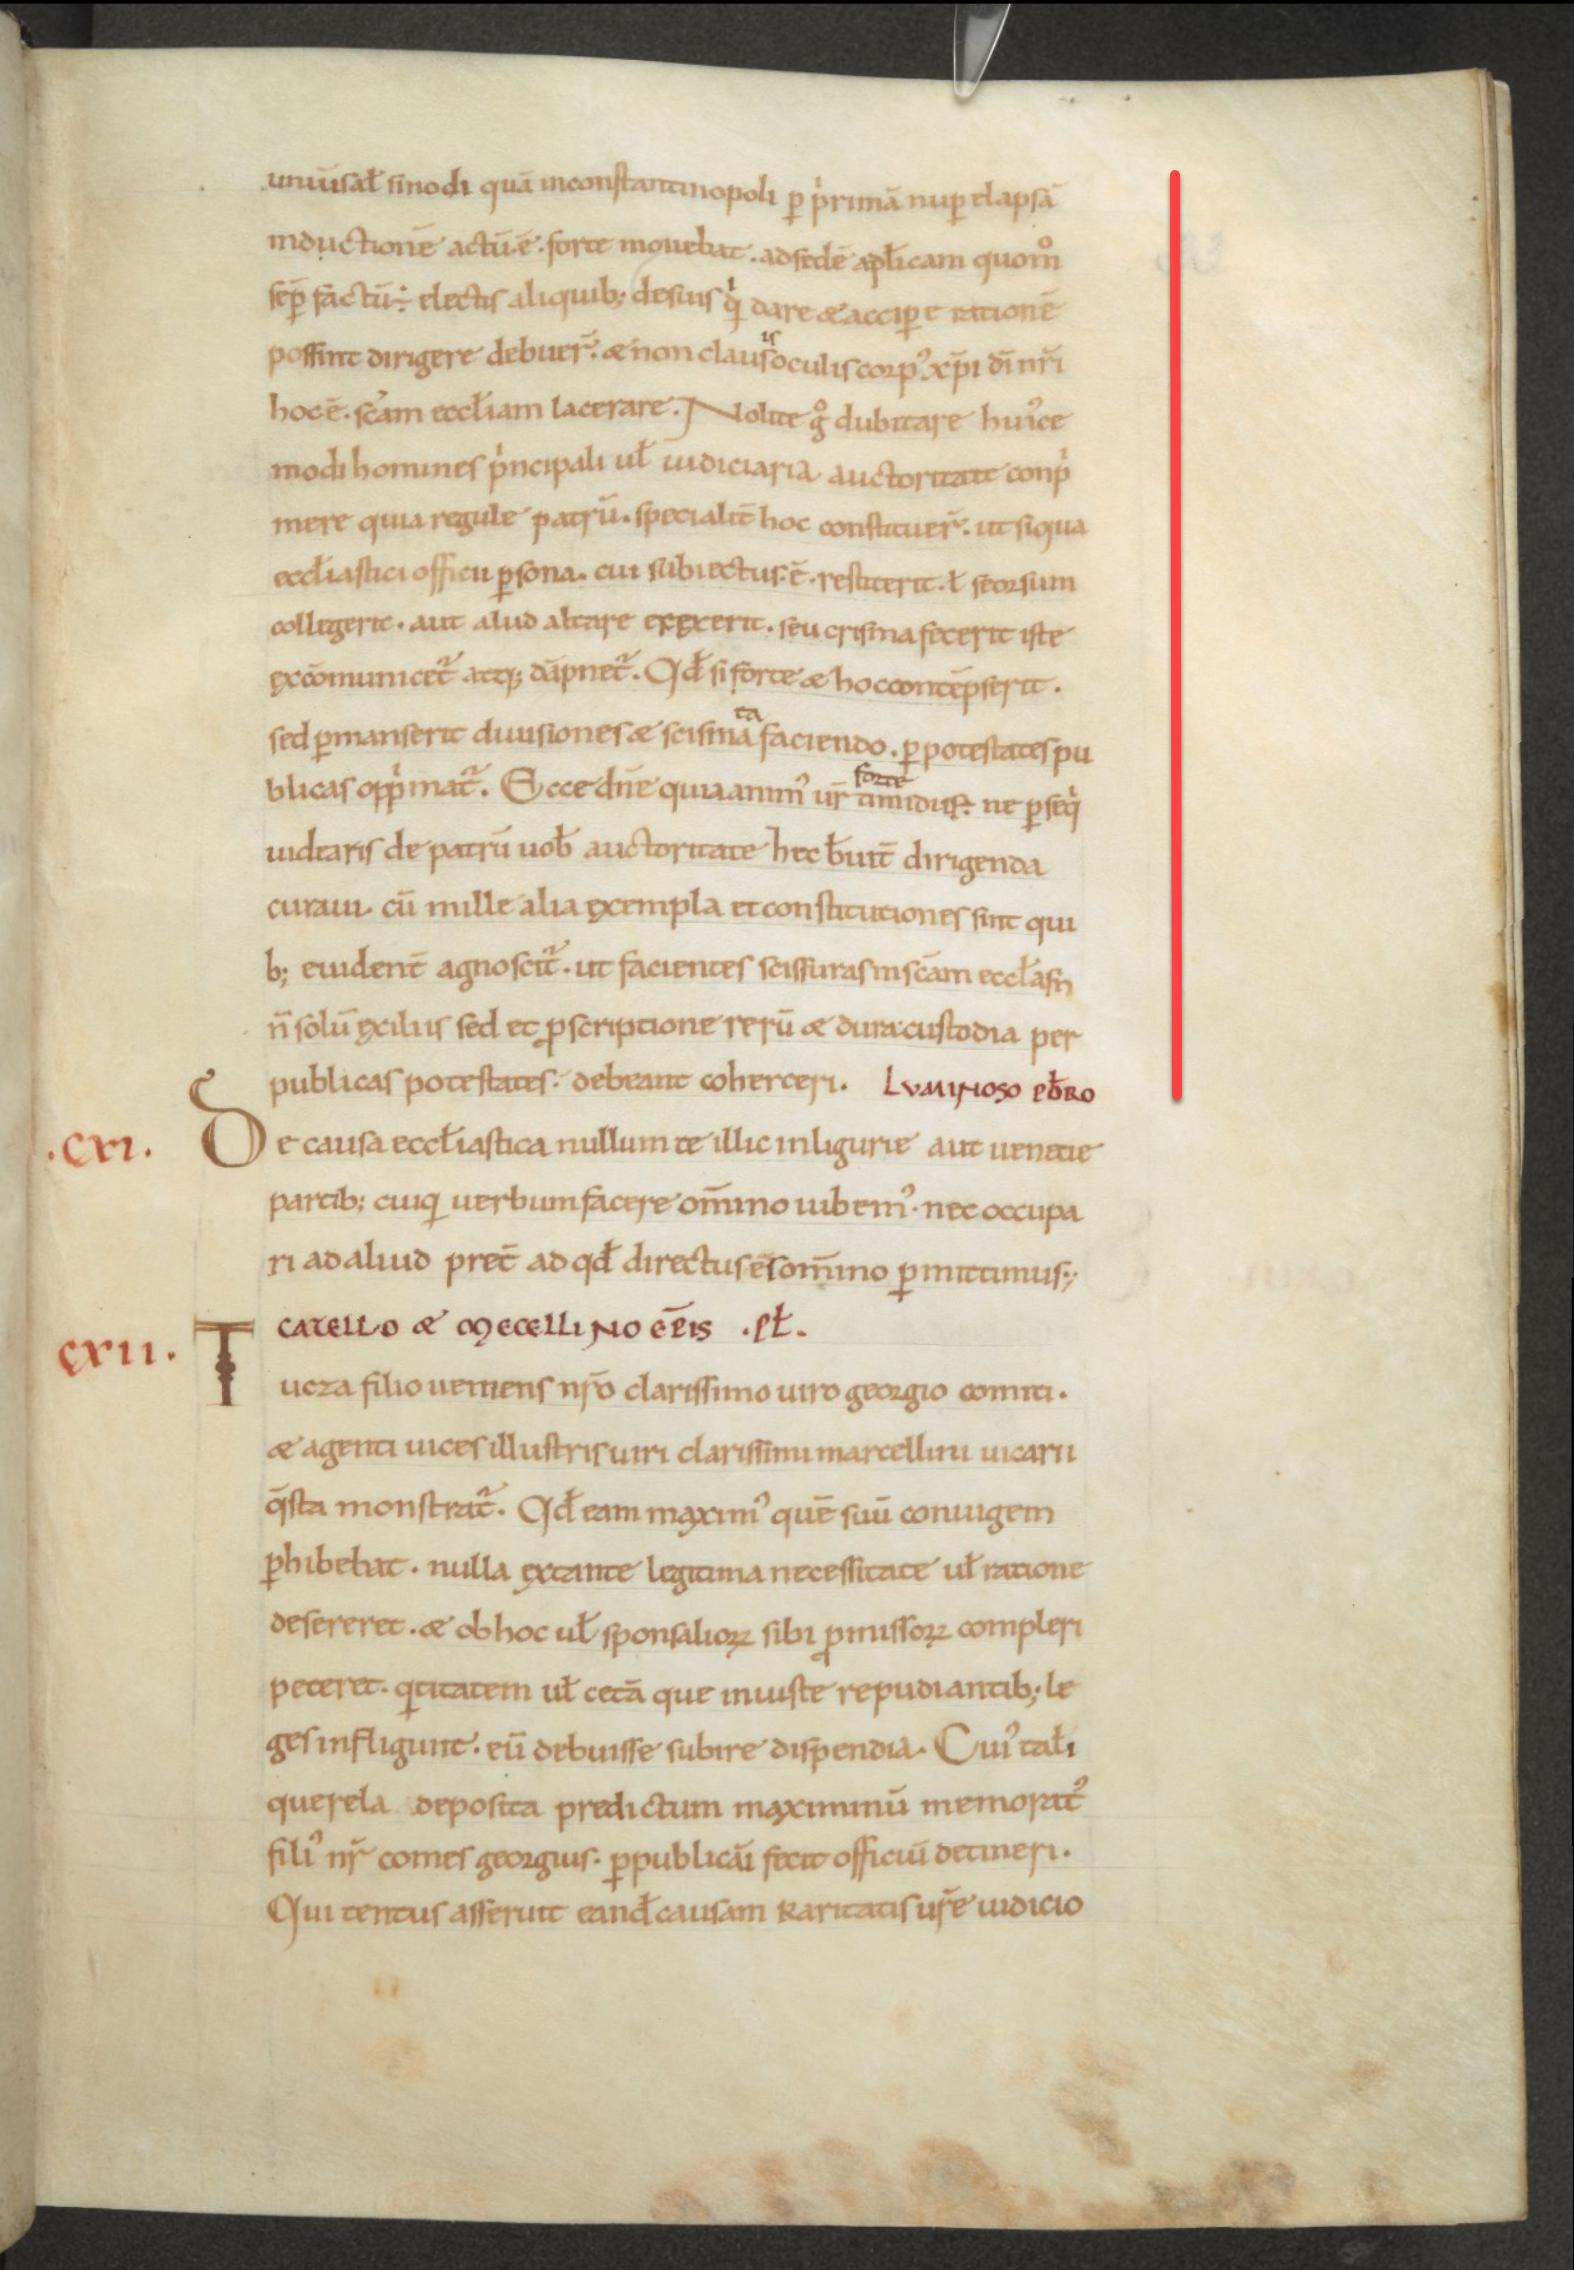 uniũsał sinodi quā inconstantinopoli ꝑ pͥrimā nuꝑ elapsā
inductionē actū·ē· forte mouebat· adsedē apłicam quom̊
seꝑ factū÷ electis aliquib; desuis qͥ dare & acciꝑe rationē
possint dirigere debuer̃· & non clausis oculis corpꝰ xp̄i dn̄i nr̄i
hoc ē· sc̄am eccłiam lacerare. Nolite g̊ dubitare huiꝰce
modi homines pͥncipali uł iudiciaria auctoritate conpͥ
mere quia regule patrū· specialit̄ hoc constituer̃· ut siqua
eccłiastici officii ꝑsona· cui subiectus·ē· restiterit· ł seorsum
collegerit· aut aliud altare erexerit· seu crisma fecerit iste
excōmunicet᷑ atq; dāpnet᷑. Qđ si forte & hoc contēpserit·
sed ꝑmanserit diuisiones & scismata faciendo· ꝑ potestates pu
blicas oppͥmat᷑. Ecce dn̄e quia animꝰ ur̄ forte timidus÷ ne ꝑseqͥ
uidearis de patrū uob̄ auctoritate hec b̄uit̄ dirigenda
curaui· cū mille alia exempla et constitutiones sint qui
b; euident̄ agnoscit᷑· ut facientes scissuras in sc̄am eccłam
n̄ solū exiliis sed et ꝓscriptione rerū & dura custodia per
publicas potestates· debeant coherceri. LVMINOSO EB̄RO
·CXI· De causa eccłiastica nullum te illic inligurie aut uenetie
partib; cuiq uerbum facere om̄ino iubemꝰ· nec occupa
ri ad aliud pret̄ ad qđ directus ēs om̄ino ꝑmittimus·;
CXII· CATELLO & MECELLINO EP̄IS ·Pł·
Tucza filio ueniens nr̄o clarissimo uiro georgio comiti·
& agenti uices illustris uiri clarissimi marcellini uicarii
q̄sta monstrat᷑. Qđ eam maximꝰ quē suū coniugem
ꝑhibebat· nulla extante legitima necessitate uł ratione
desereret· & ob hoc uł sponsalioꝝ sibi ꝓmissoꝝ compleri
peteret· qtitatem uł cetā que iniuste repudiantib; le
ges infligunt· eū debuisse subire dispendia. Cuiꝰ tałi
querela deposita predictum maximinū memoratꝰ
filiꝰ nr̄ comes georgius· ꝑ publicū fecit officiū detineri.
Qui tentus asseruit eanđ causam karitatis ur̄e iudicio